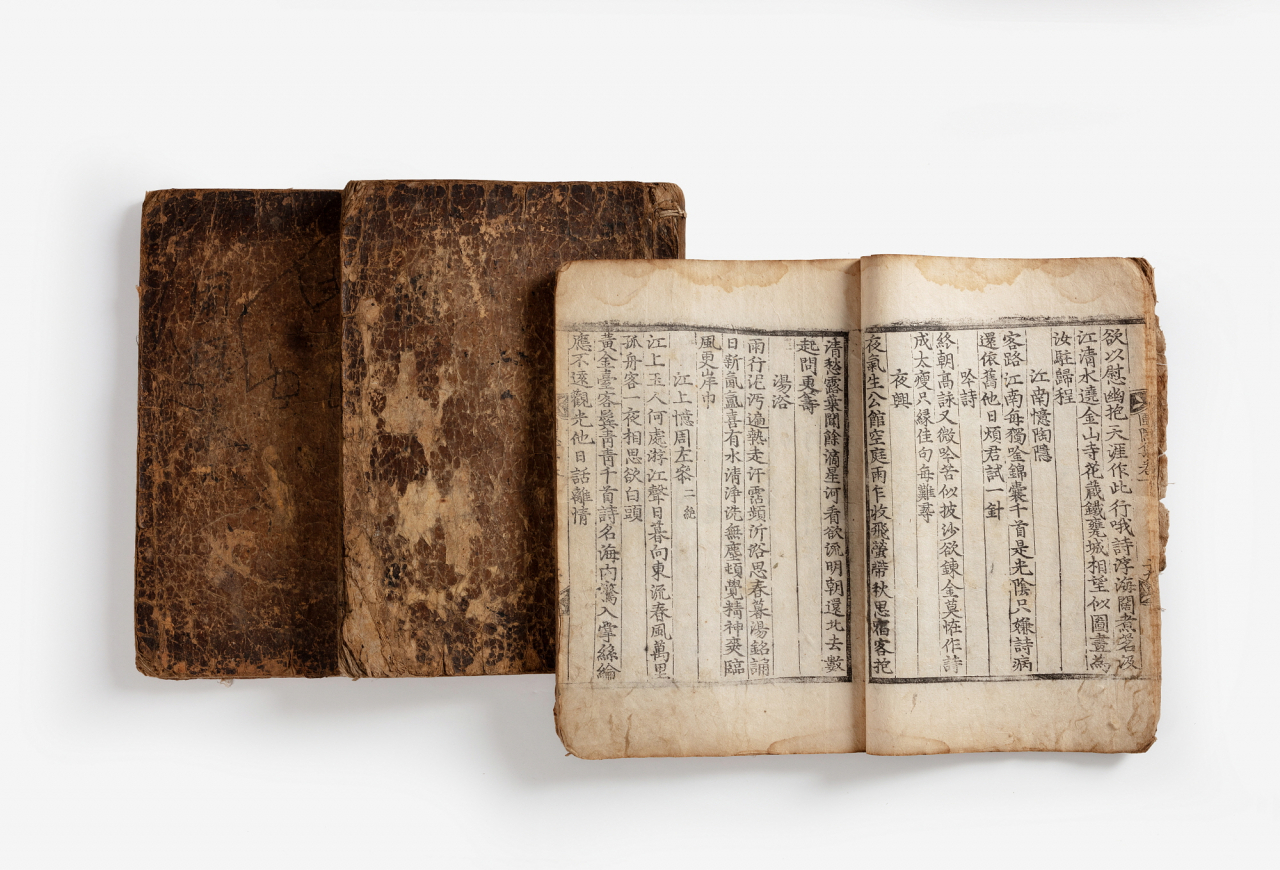 欲以慰幽抱天涯作此行哦詩浮海闊煮茗汲
江清水遶金山寺花藏鐵甕城相望似圖畫為
汝駐歸程
江南憶陶隱
客路江南每獨吟錦囊千首是光陰只嫌詩病
還依舊他日煩君試一針
吟詩
終朝高詠又微吟苦似披沙欲鍊金莫恠作詩
成太瘦只緣佳句每難尋
夜興
夜氣生公館空庭雨乍收飛螢帶秋思宿客抱
清愁露葉闌餘滴星河看欲流明朝還北去數
起問更籌
湯浴
雨行泥沔遍熱走汗霑頻沂浴思春暮湯銘誦
日新氤氳喜有水清淨洗無塵頓覺精神爽臨
風更岸巾
江上憶周左參二絶
江上玉人何處游江聲日暮向東流春風萬里
孤舟客一夜相思欲白頭
黃金臺客鬂靑靑千首詩名海內驚入掌絲綸
應不遠觀光他日話離情